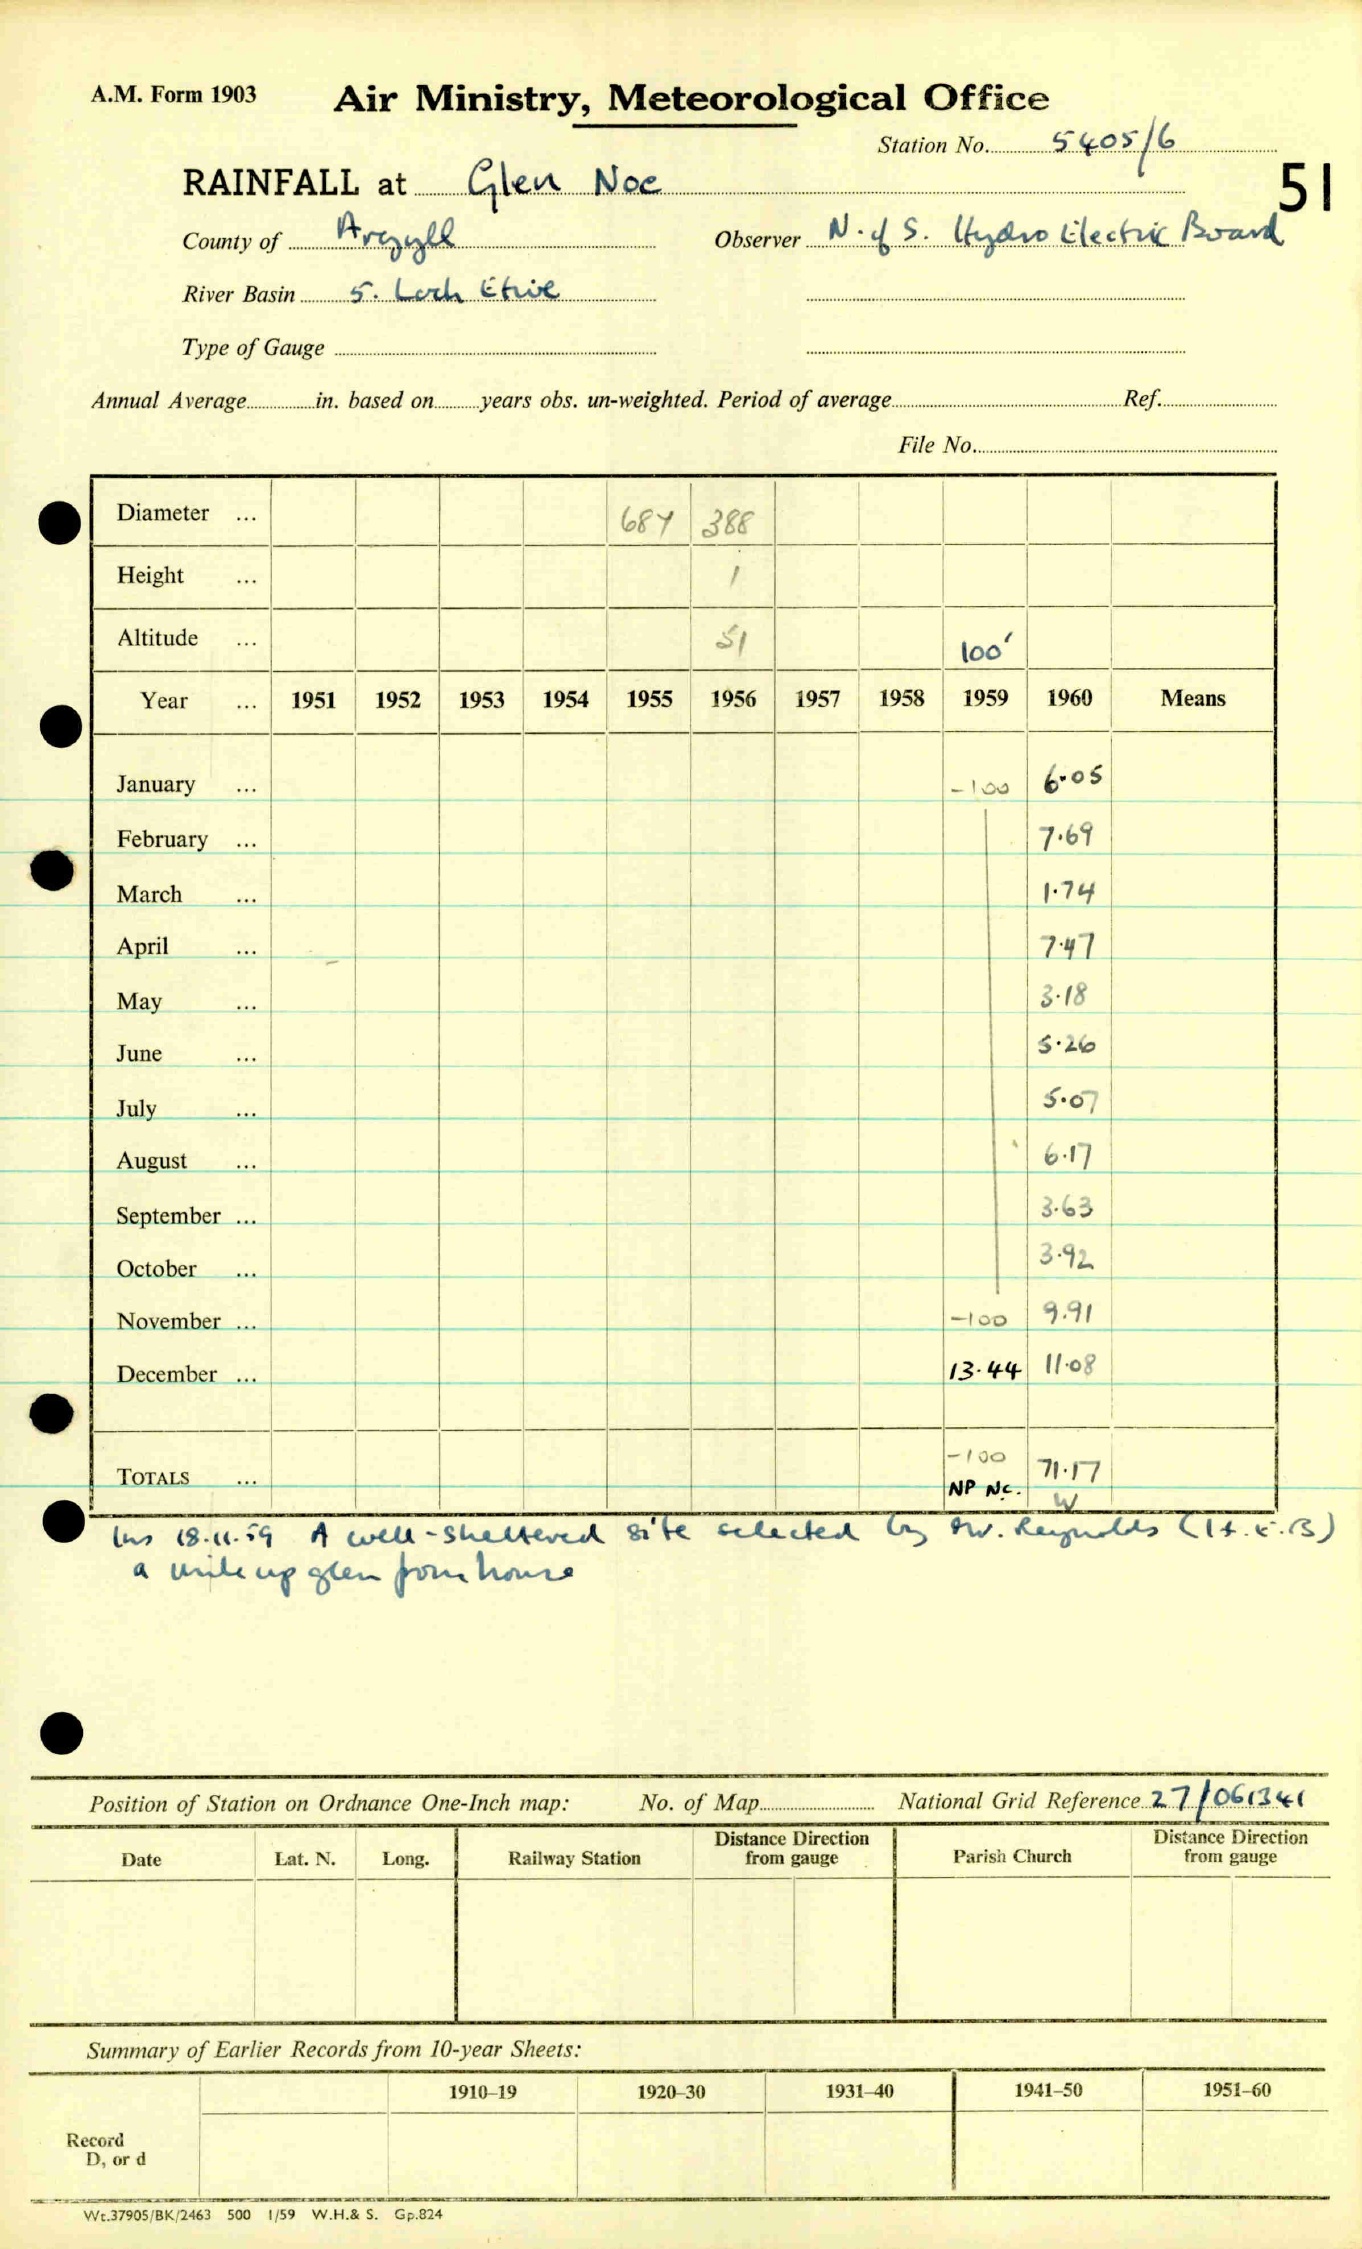 A.M. Form 1903 Air Ministry, Meteorological Office
Station No. 5405/6
RAINFALL at Glen Noe 51
County of Argyll Observer N. of S. Hydro Electric Board
River Basin 5. Loch Etive
Type of Gauge
Annual Average in. based on years obs. un-weighted. Period of average Ref.
File No.
Diameter ... 687 388
Height ... 1
Altitude ... 51 100'
Year ... 1951 1952 1953 1954 1955 1956 1957 1958 1959 1960 Means
January ... -100 6.05
February ... 7.69
March ... 1.74
April ... 7.47
May ... 3.18
June ... 5.26
July ... 5.07
August ... 6.17
September ... 3.63
October ... 3.92
November ... -100 9.91
December ... 13.44 11.08
TOTALS ... -100 71.17
NP Nc. W
Ins 18.11.59 A well-sheltered site selected by Mr. Reynolds (H.E.B)
a mile up glen from house
Position of Station on Ordnance One-Inch map: No. of Map National Grid Reference 27/061341
Date Lat. N. Long. Railway Station Distance Direction from gauge Parish Church Distance Direction from gauge
Summary of Earlier Records from 10-year Sheets:
1910–19 1920–30 1931–40 1941–50 1951–60
Record
D, or d
Wt.37905/BK/2463 500 1/59 W.H.& S. Gp.824